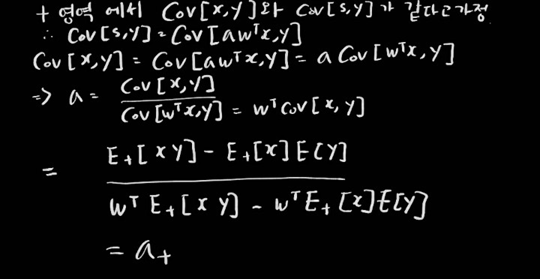 + 영역 에서 Cov[x,y]와 Cov[s,y]가 같다고 가정
∴ Cov[s,y] = Cov[awᵀx,y]
Cov[x,y] = Cov[awᵀx,y] = a Cov[wᵀx,y]
=> a = Cov[x,y] / Cov[wᵀx,y] = wᵀCov[x,y]
= E₊[xy] - E₊[x]E[y] / wᵀE₊[xy] - wᵀE₊[x]E[y]
= a₊